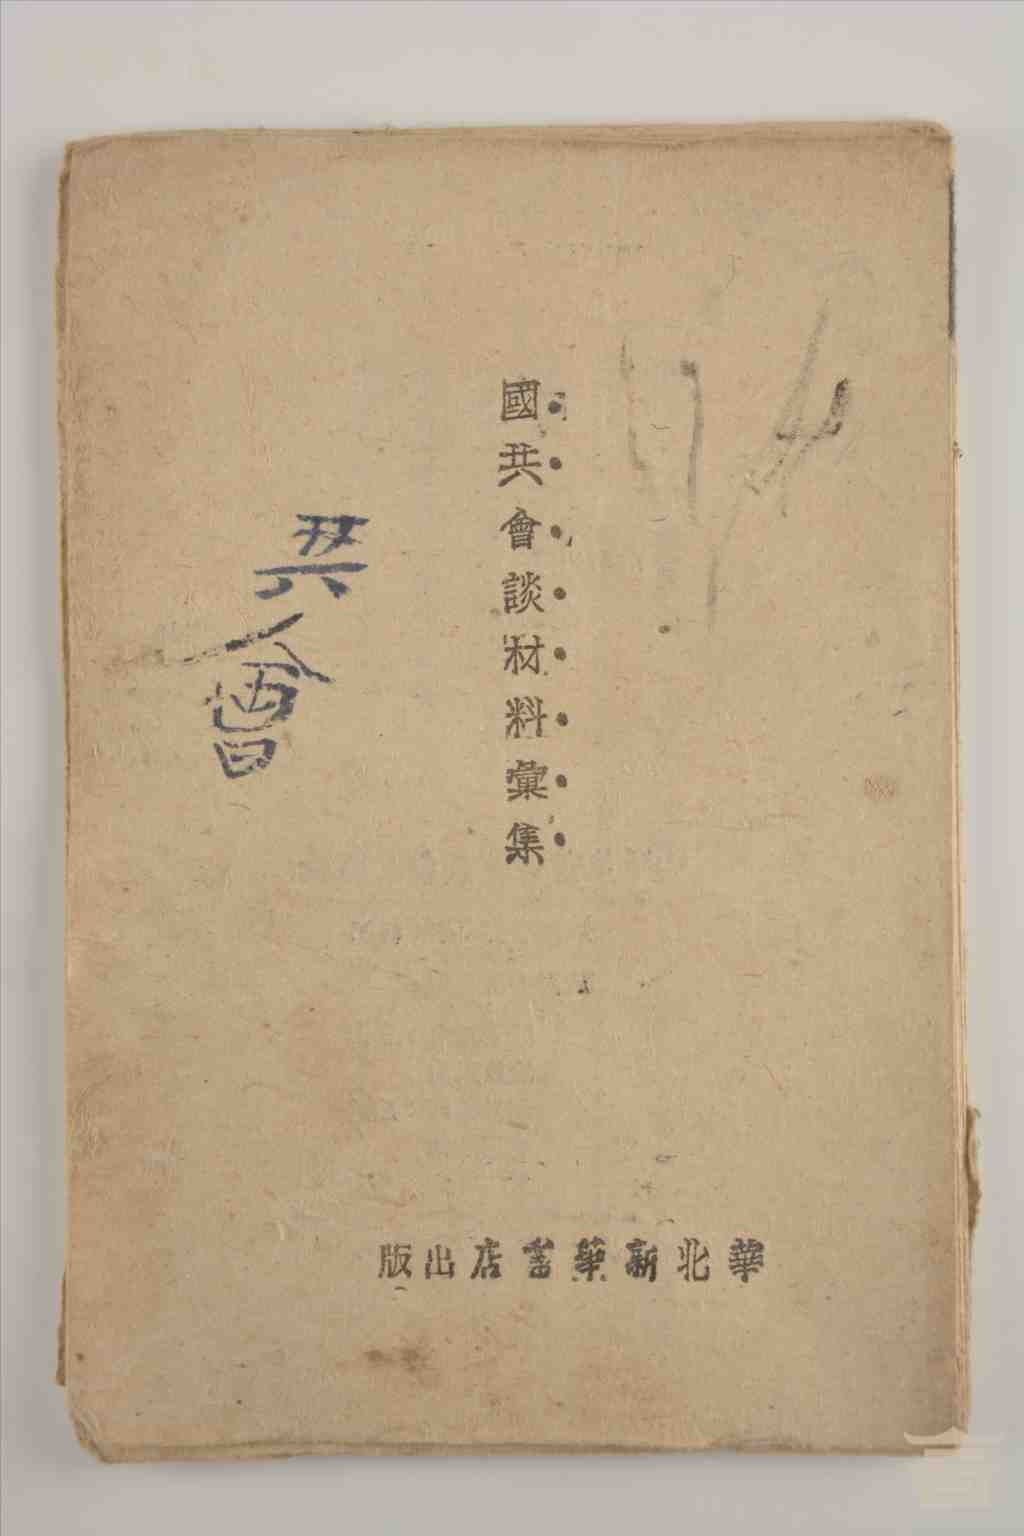 國共會談材料彙集
共會
華北新華書店出版